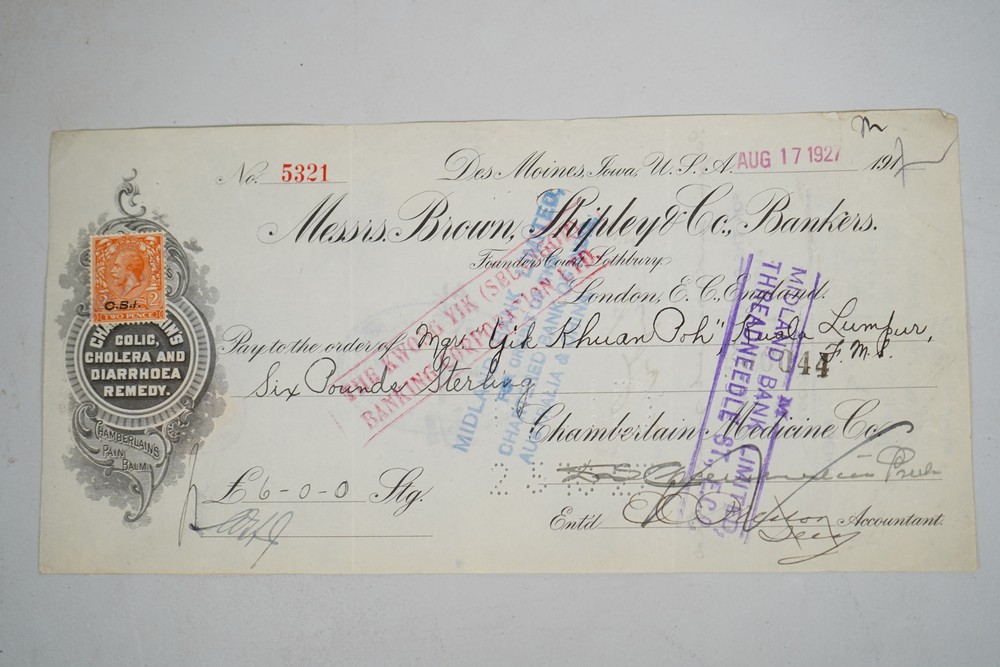 No. 5321
Des Moines, Iowa, U.S.A. AUG 17 1927 191
Messrs. Brown, Shipley & Co., Bankers.
Founders Court, Lothbury
London, E.C., England.
Pay to the order of "Mgr. Yik Khuan Poh", Kuala Lumpur,
F.M.S.
Six Pounds Sterling
044
Chamberlain Medicine Co.
£ 6-0-0 Stg.
Ent'd Accountant.
C.S.L.
TWO PENCE
COLIC,
CHOLERA AND
DIARRHOEA
REMEDY.
CHAMBERLAIN'S
PAIN
BALM
THE KWONG YIK (SELANGOR)
BANKING CORPORATION LTD.
MIDLAND BANK LIMITED,
AUSTRALIA &
MIDLAND BANK LIMITED,
THREADNEEDLE ST., E.C.